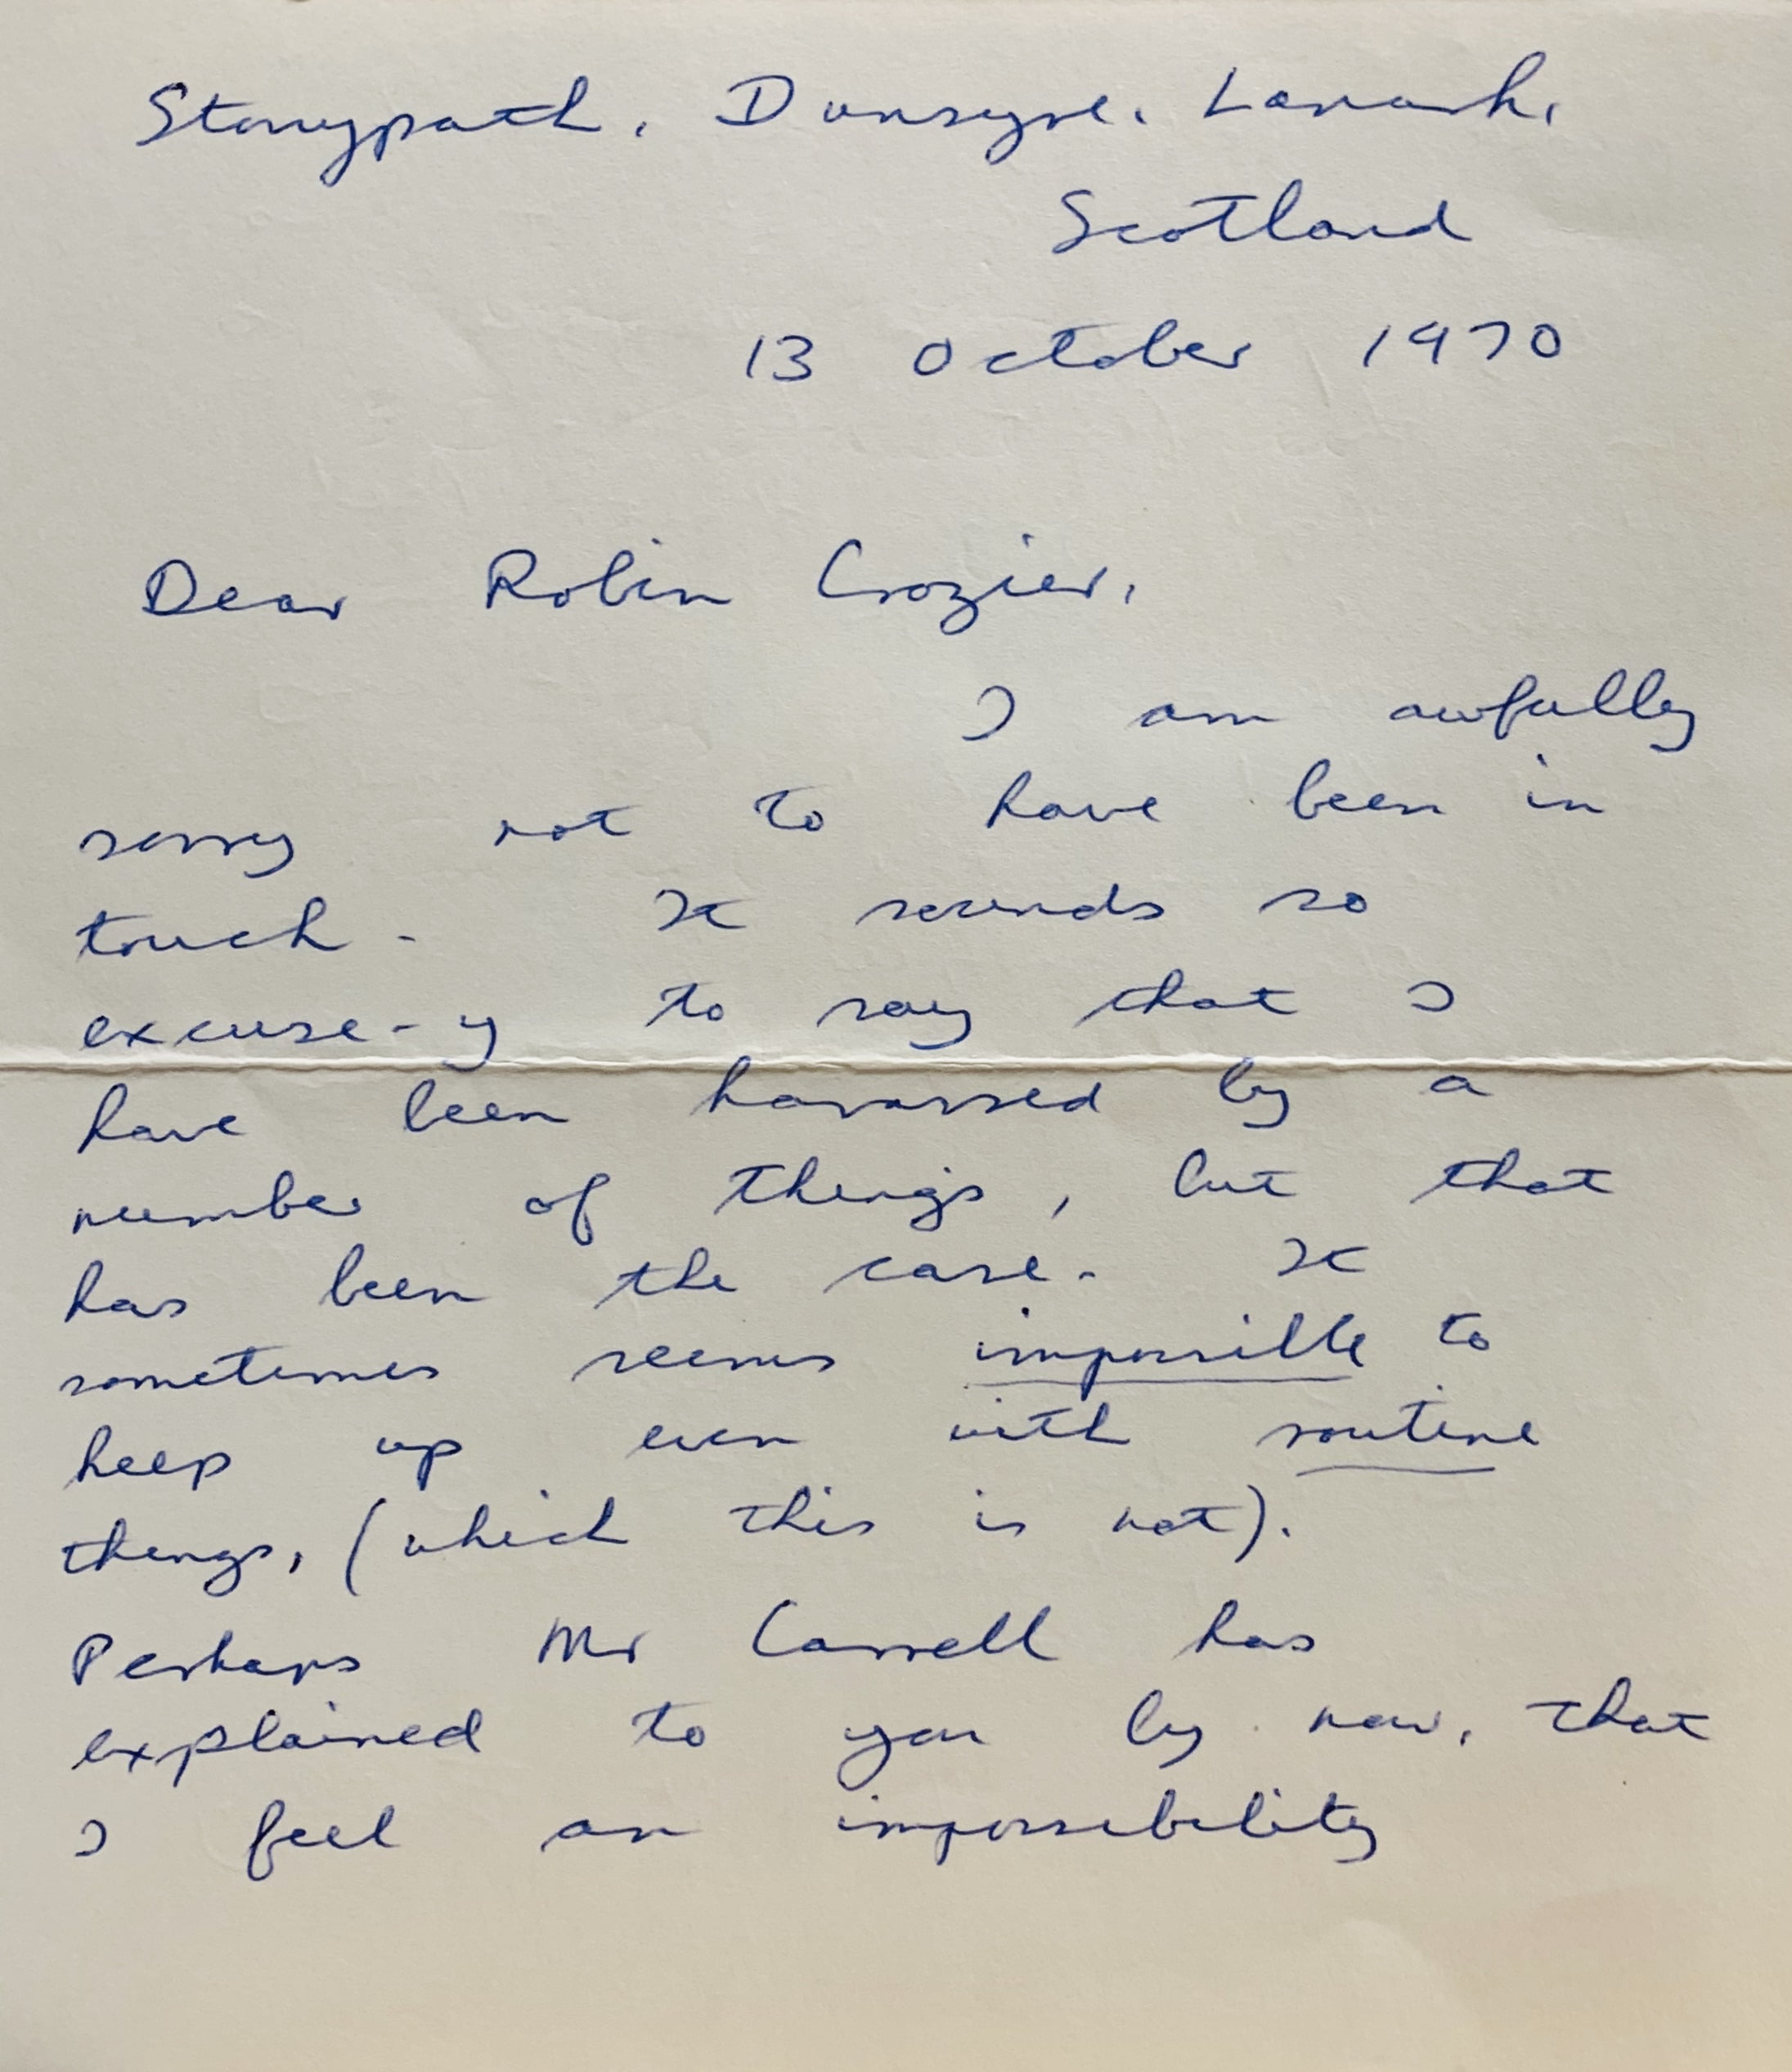 Stonypath, Dunsyre, Lanark,
Scotland
13 October 1970
Dear Robin Crozier,
I am awfully
sorry not to have been in
touch. It sounds so
excuse-y to say that I
have been harassed by a
number of things, but that
has been the case. It
sometimes seems impossible to
keep up even with routine
things, (which this is not).
Perhaps Mr Carrell has
explained to you by now, that
I feel an impossibility